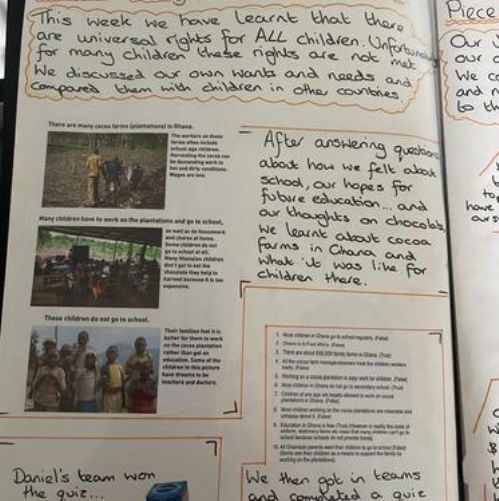 This week we have learnt that there
are universal rights for ALL children. Unfortunately
for many children these rights are not met
We discussed our own wants and needs and
compared them with children in other countries.
Piece
Our
our
We c
and
to th
There are many cocoa farms (plantations) in Ghana.
The workers on these
farms often include
school-age children.
Harvesting the cocoa can
be demanding work in
hot and dirty conditions.
Wages are low.
Many children have to work on the plantations and go to school,
as well as do housework
and chores at home.
Some children do not
go to school at all.
Many Ghanaian children
don't get to eat the
chocolate they help to
harvest because it is too
expensive.
These children do not go to school.
Their families feel it is
better for them to work
on the cocoa plantation
rather than get an
education. Some of the
children in this picture
have dreams to be
teachers and doctors.
After answering questions
about how we felt about
school, our hopes for
future education... and
our thoughts on chocolate,
we learnt about cocoa
farms in Ghana and
what it was like for
children there.
1. Most children in Ghana go to school regularly (False)
2. Ghana is in East Africa (False)
3. There are about family farms in Ghana. (True)
4. All the cocoa farm treat the children workers
badly. (False)
5. Working on a cocoa plantation is easy work for children. (False)
6. Most children in Ghana do not go to secondary school. (True)
7. Children of any age are legally allowed to work on cocoa
plantations in Ghana. (False)
8. Most children working on the cocoa plantations are miserable and
unhappy about it. (False)
9. Education in Ghana is free (True) (However in reality the costs of
uniform, stationery items etc mean that many children can't go to
school because schools do not provide these).
10. All Ghanaian parents want their children to go to school (False)
(Some see their children as a means to support the family by
working on the plantations).
Daniel's team won
the quiz...
We then got in teams
and completed a quiz